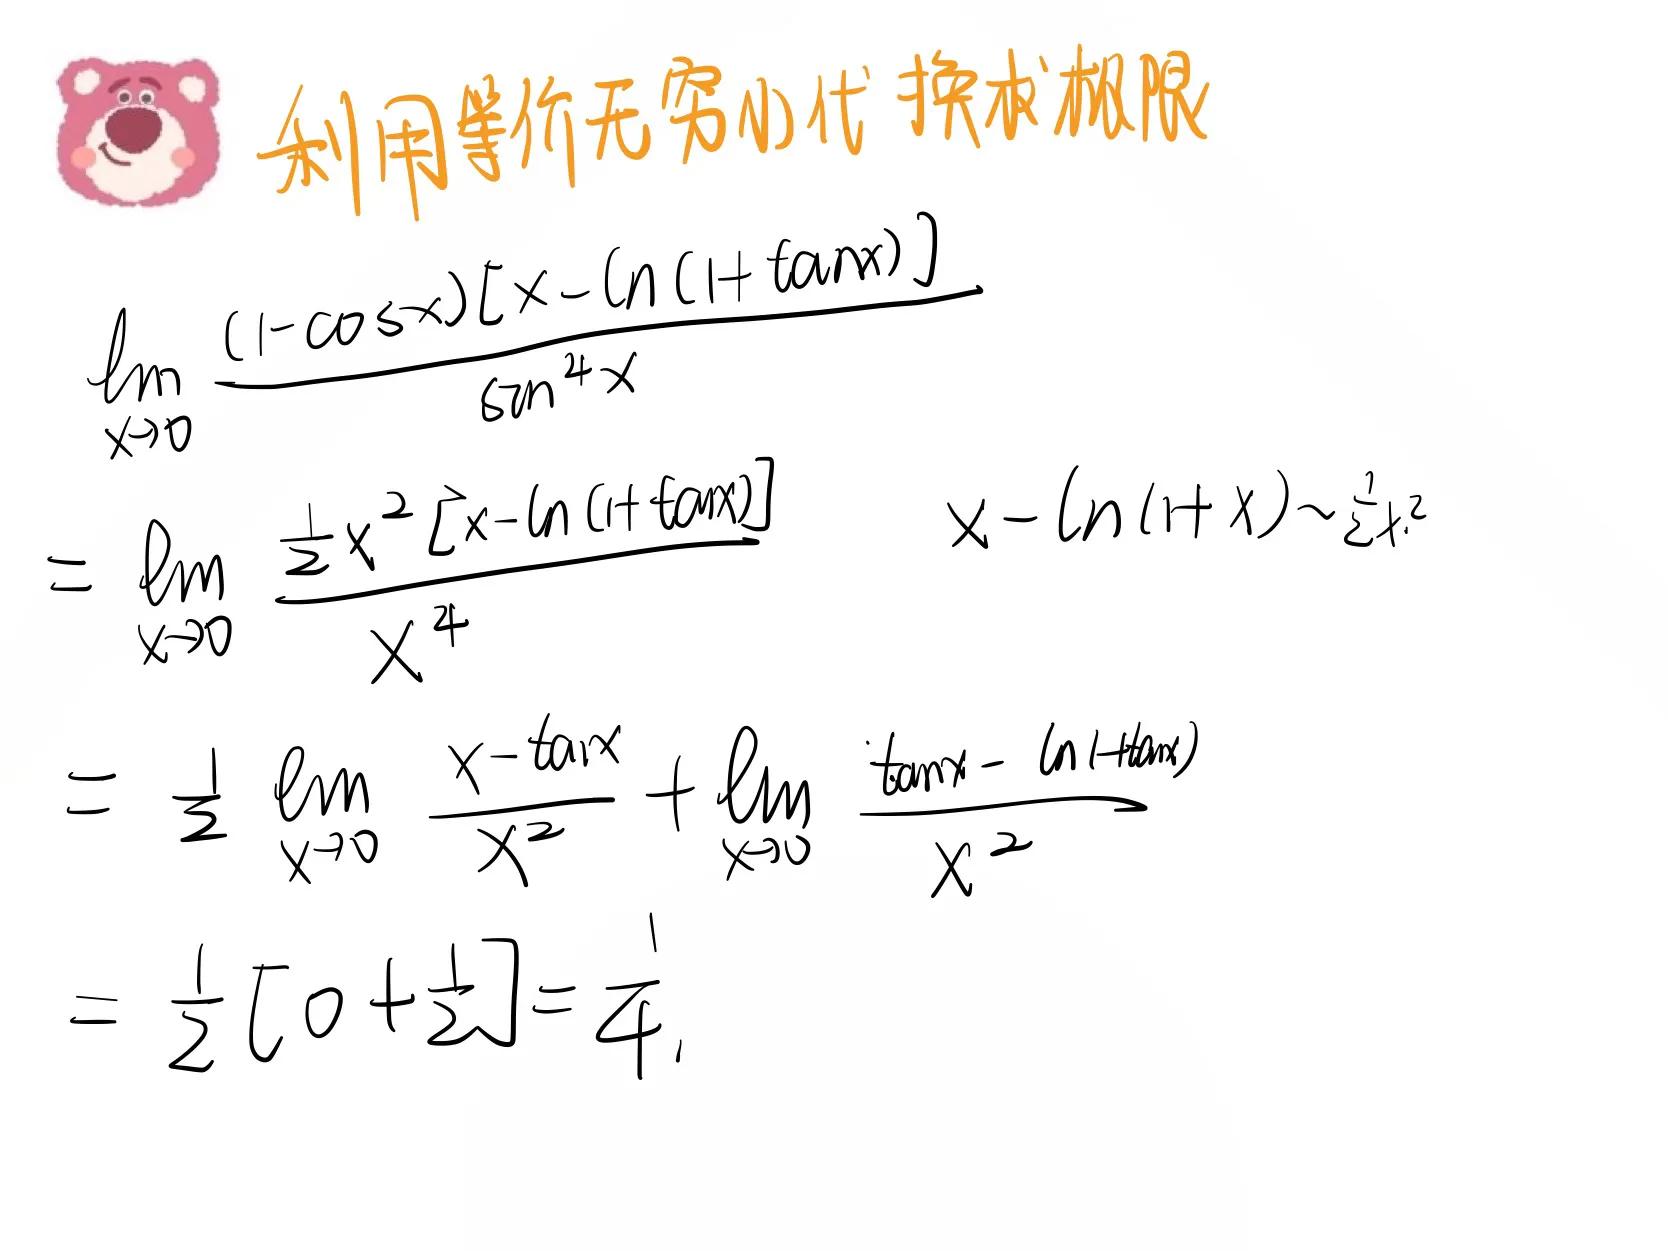 利用等价无穷小代换求极限
lim x→0 (1-cosx)[x-ln(1+tanx)] / sin⁴x
= lim x→0 ½x²[x-ln(1+tanx)] / x⁴
x-ln(1+x)~½x²
= ½ lim x→0 (x-tanx)/x² + lim x→0 (tanx-ln1+tanx))/x²
= ½[0+½]=¼.